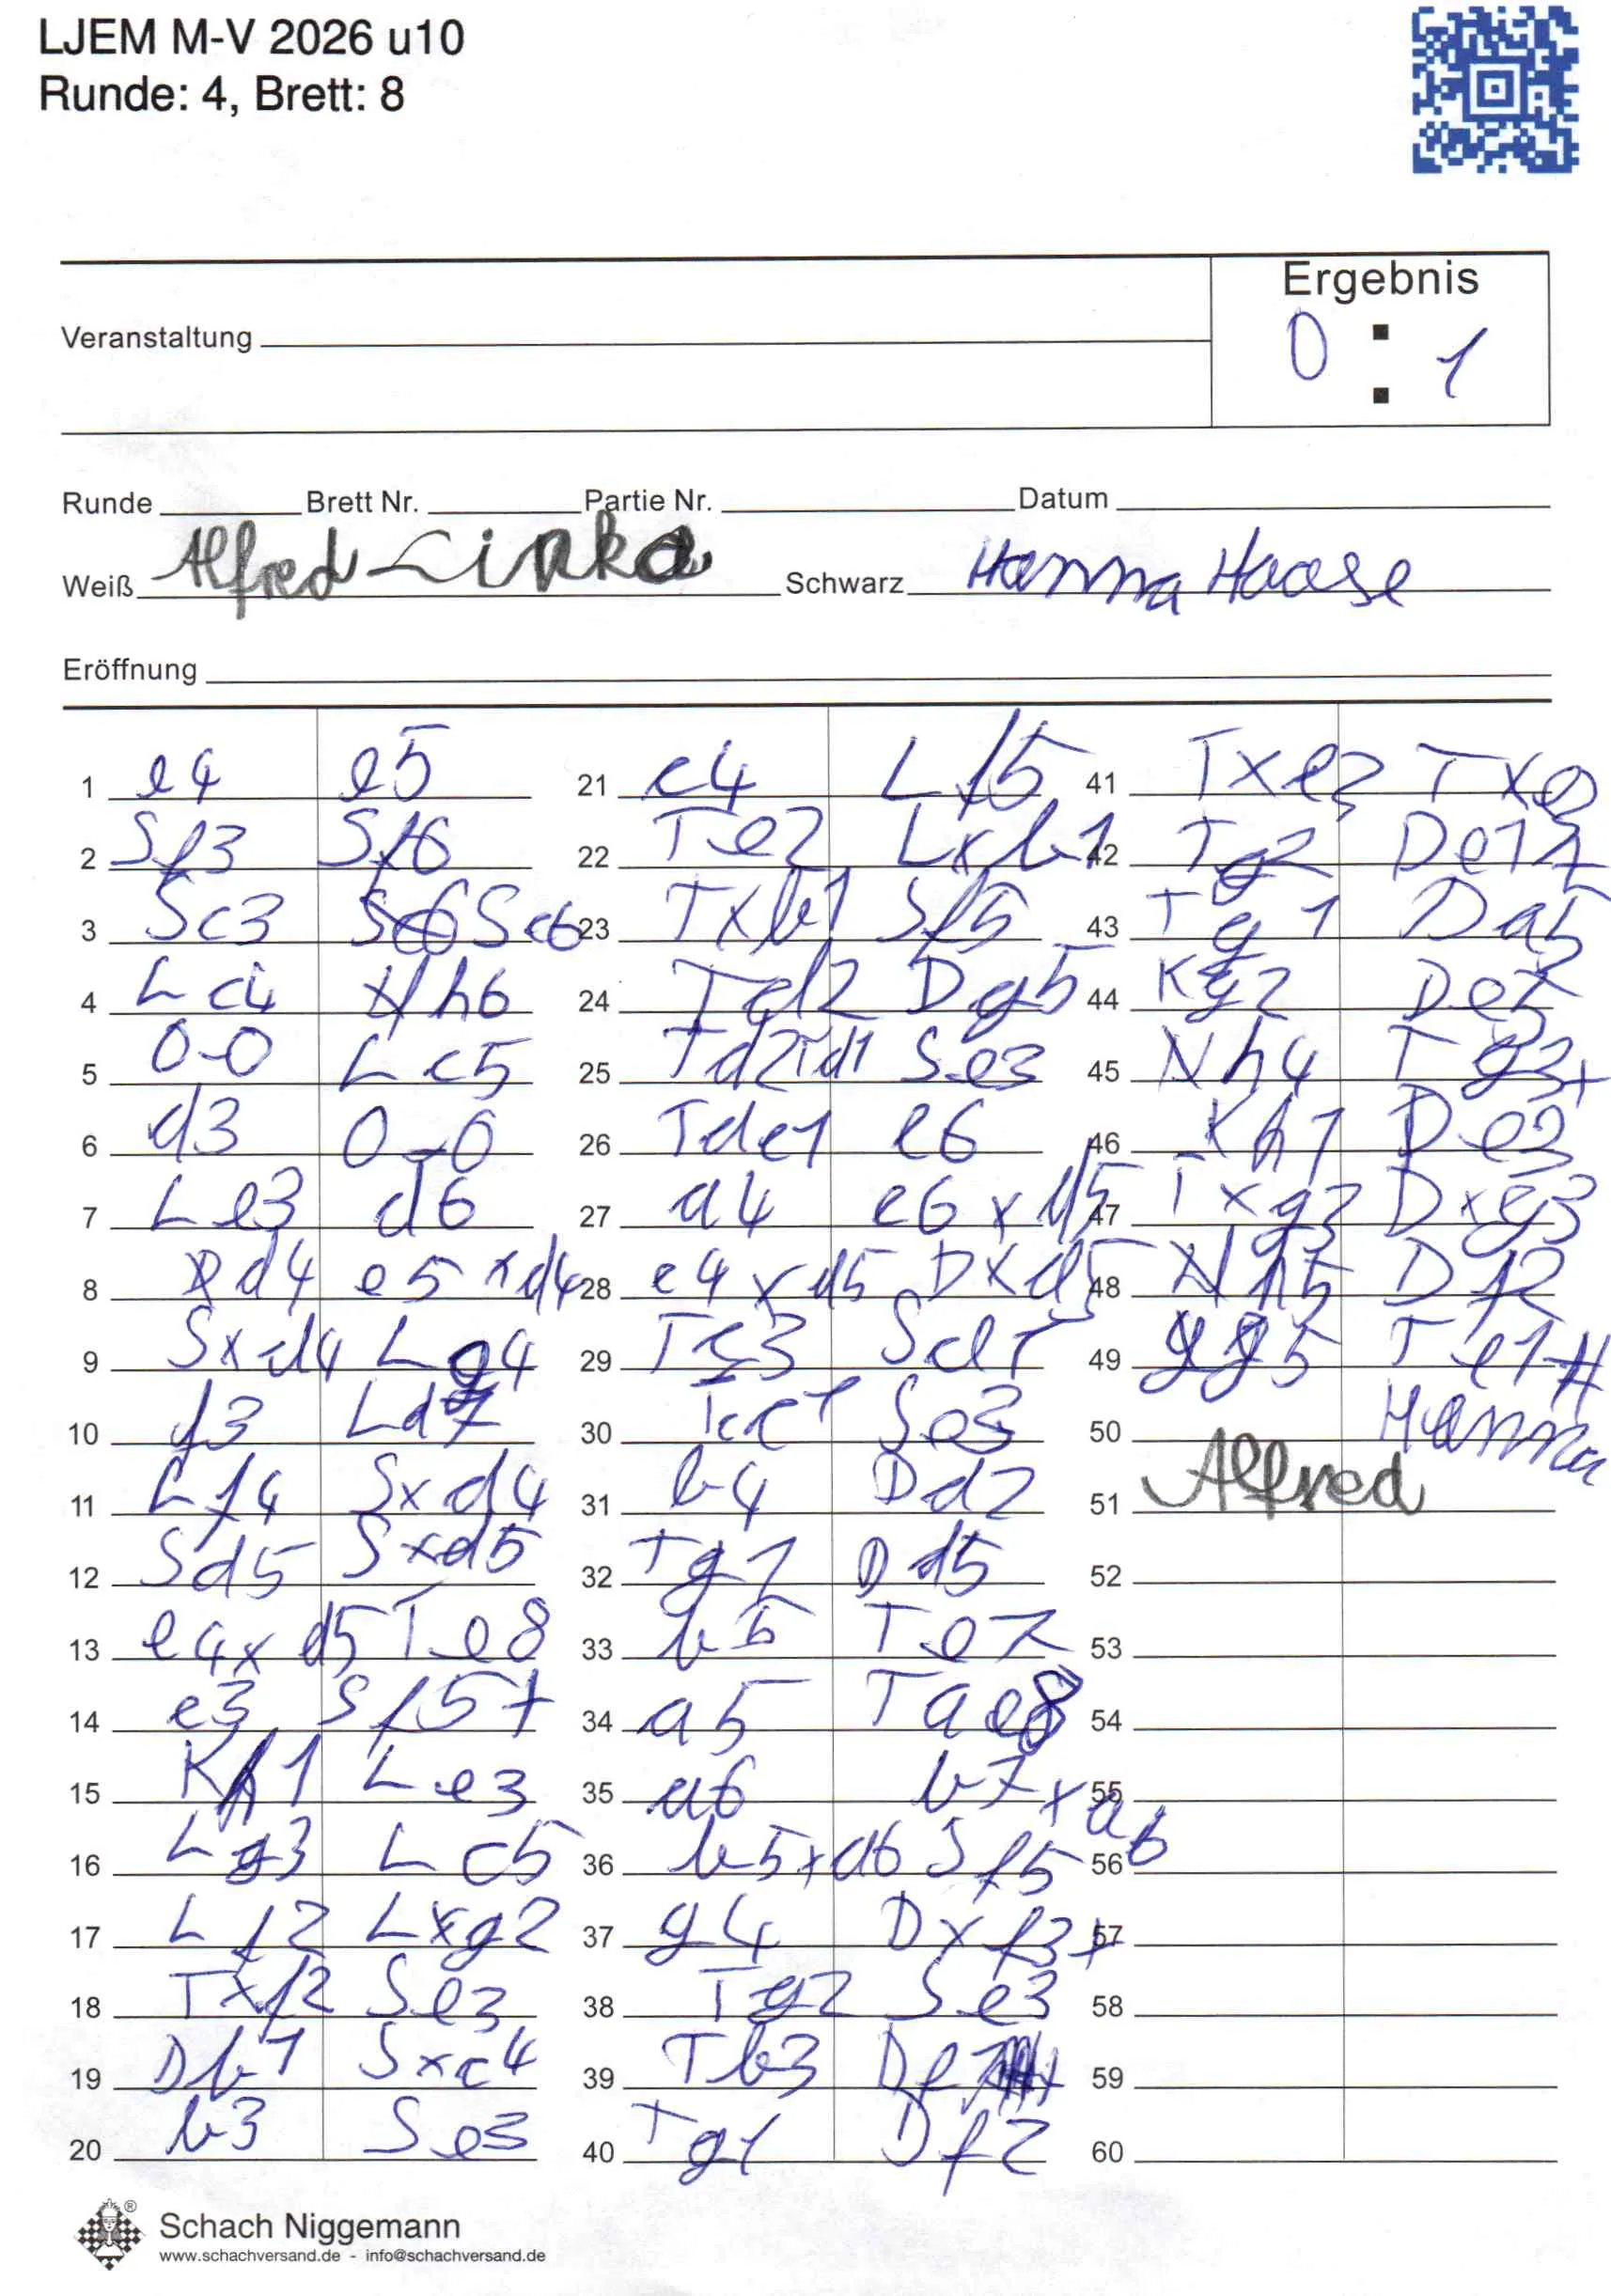 LJEM M-V 2026 u10
Runde: 4, Brett: 8
Ergebnis
Veranstaltung
0 : 1
Runde Brett Nr. Partie Nr. Datum
Weiß Alfred Linka Schwarz Hanna Haase
Eröffnung
1 e4 e5
2 Sf3 Sf6
3 Sc3 Sc6
4 Lc4 h6
5 0-0 Lc5
6 d3 0-0
7 Le3 d6
8 d4 e5xd4
9 Sxd4 Lg4
10 f3 Ld7
11 Lf4 Sxd4
12 Sd5 Sxd5
13 e4xd5 Te8
14 c3 Sf5+
15 Kh1 Le3
16 Lg3 Lc5
17 Lf2 Lxg2
18 Txf2 Se3
19 Db1 Sxc4
20 b3 Se3
21 c4 Lf5
22 Te2 Lxb1
23 Txb1 Sf5
24 Td2 Dg5
25 Td1 Se3
26 Tde1 c6
27 a4 c6xd5
28 c4xd5 Dxd5
29 Tc3 Sd1
30 Tcc1 Se3
31 b4 Dd2
32 Tg1 Dd5
33 b5 Te7
34 a5 Tae8
35 a6 b7xa6
36 b5xa6 Sf5
37 g4 Dxf3+
38 Tg2 Se3
39 Tb3
40 Tg1 Df2
41 Txe3 Txe3
42 Tg2 De1+
43 Tg1 Da5
44 Kg2 De
45 h4 Tg3+
46 Kh1 De3
47 Txg3 Dxg3
48 h5 Df2
49 g5 Te1#
50 Hanna
51 Alfred
52
53
54
55
56
57
58
59
60
Schach Niggemann
www.schachversand.de - info@schachversand.de